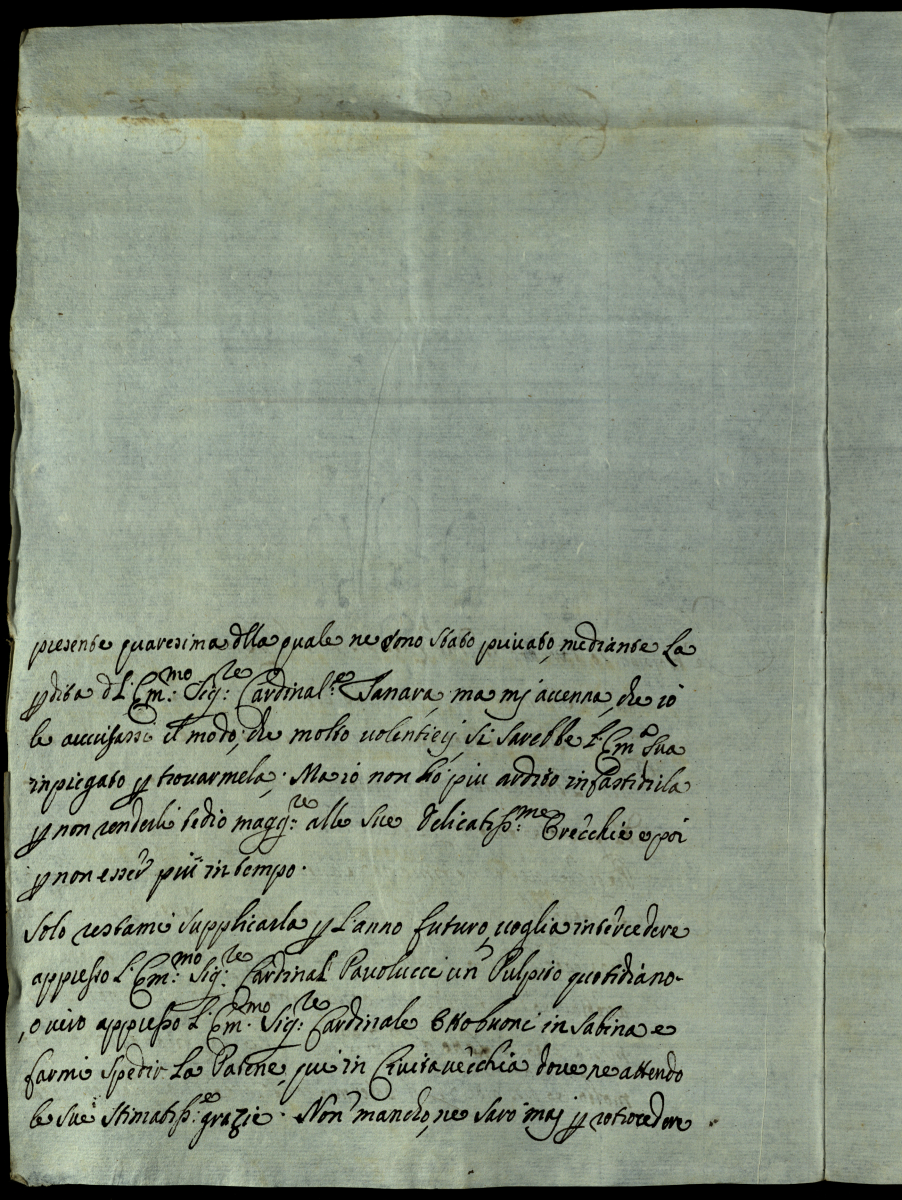 presente quaresima dlla quale ne sono stato privato, mediante la
p̱dita d L'Em.mo Sig.re Cardinal.e Tanara, ma mj accenna, che io
le avvisassi il modo, che molto volentierj si sarebbe l'Em.a Sua
inpiegato p̱ trovarmela; Ma io non hò piu ardito infastidirla
p̱ non renderli tedio magg.re alle sue delicatiss.me Orecchie e poi
p̱ non esser più in tempo.
Solo restami supplicarla p̱ L'anno futuro, voglia intercedere
appresso L'Em.mo Sig.re Cardinal Pavolucci un Pulpito quotidiano
, o vero appresso L'Em.mo Sig.re Cardinale Ottobuoni in Sabina e
farmi spedir La Patene, qui in Civitavecchia dove ne attendo
le sue stimatiss.e grazie. Non mancho, ne sarò maj p̱ retrocedere